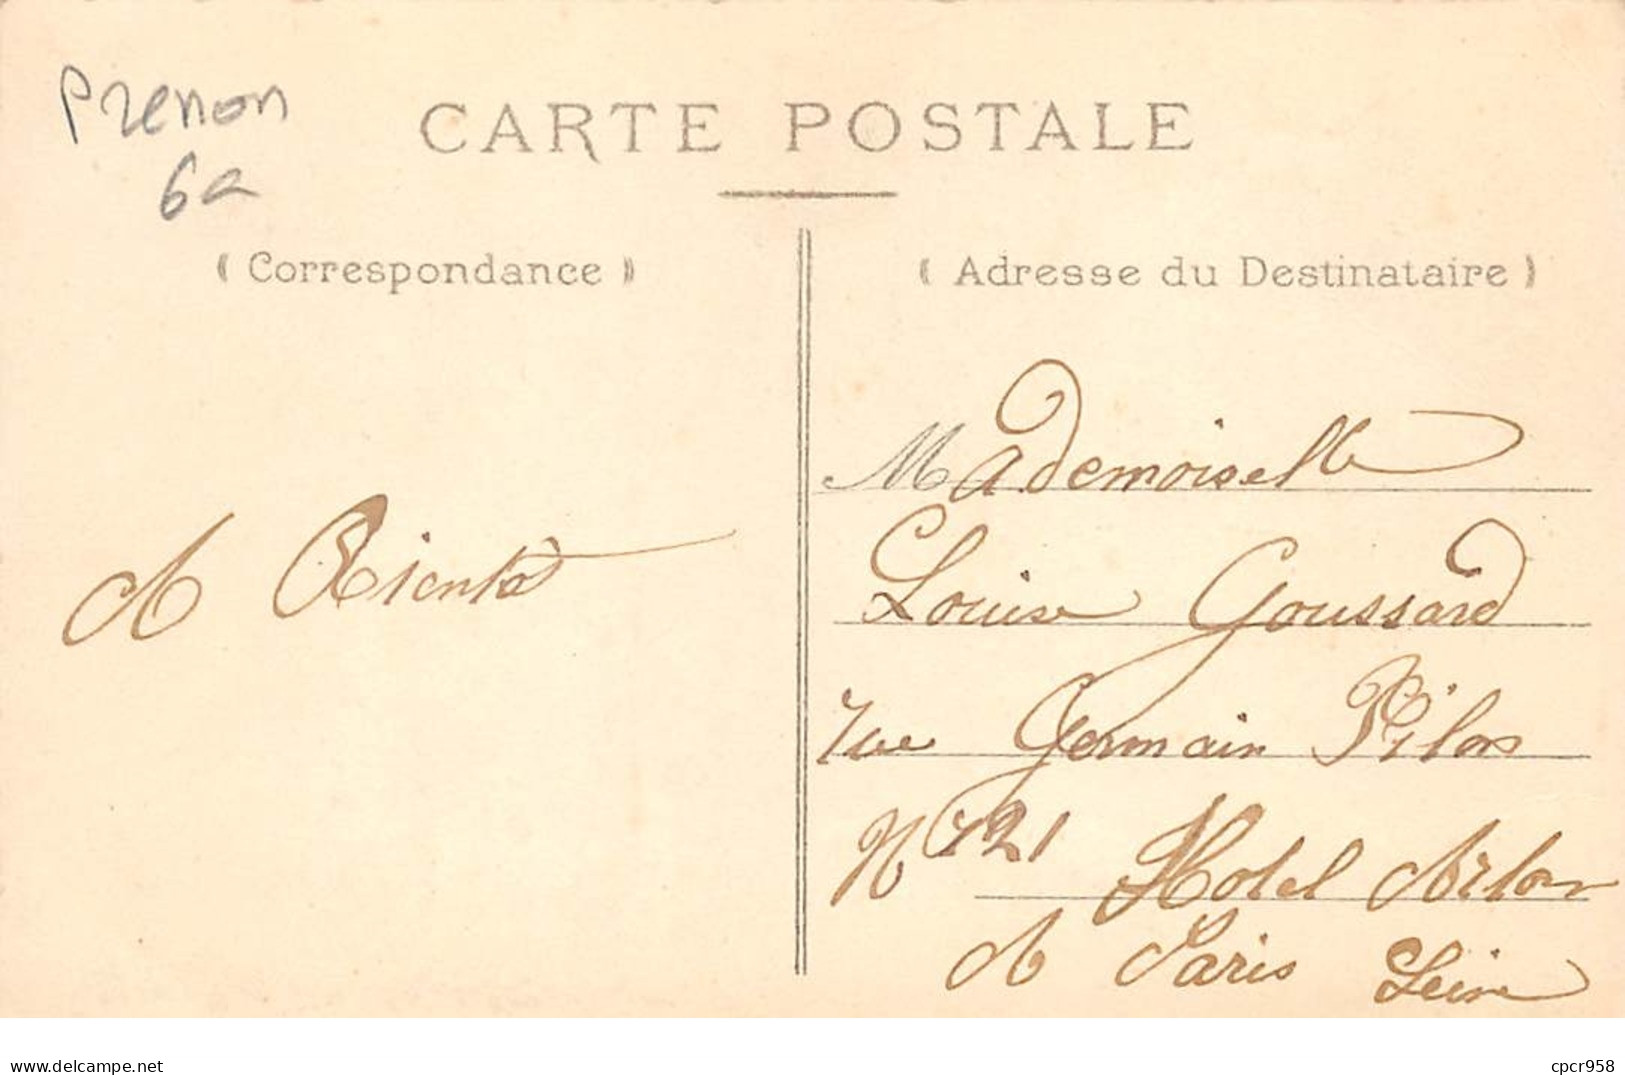 Prenon
6a
CARTE POSTALE
( Correspondance )
( Adresse du Destinataire )
A Bientô
Mademoiselle
Louise Goussard
rue Germain Pilon
N 21 Hotel Arlon
A Paris Seine
delcampe.net
cpcr958